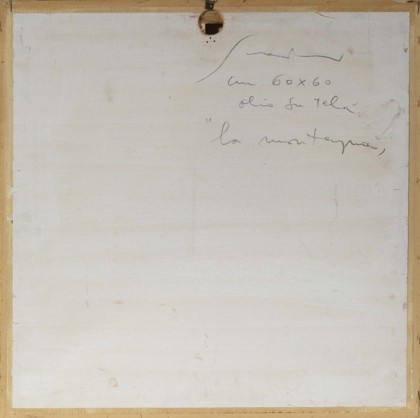 cm 60x60
olio su tela
"la montagna"